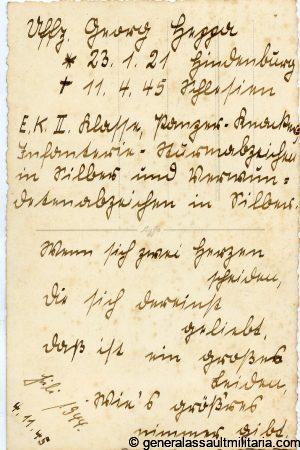 Uffz. Georg Heppa
* 23. 1. 21 Hindenburg
† 11. 4. 45 Schlesien
E.K. II. Klasse, Panzer-Knacker,
Infanterie-Sturmabzeichen
in Silber und Verwun=
detenabzeichen in Silber.
Wenn sich zwei Herzen
scheiden,
die sich dereinst
geliebt,
daß ist ein großes
Leiden,
Wie's größ'res
nimmer gibt.
Juli 1944.
4. 11. 45
© generalassaultmilitaria.com